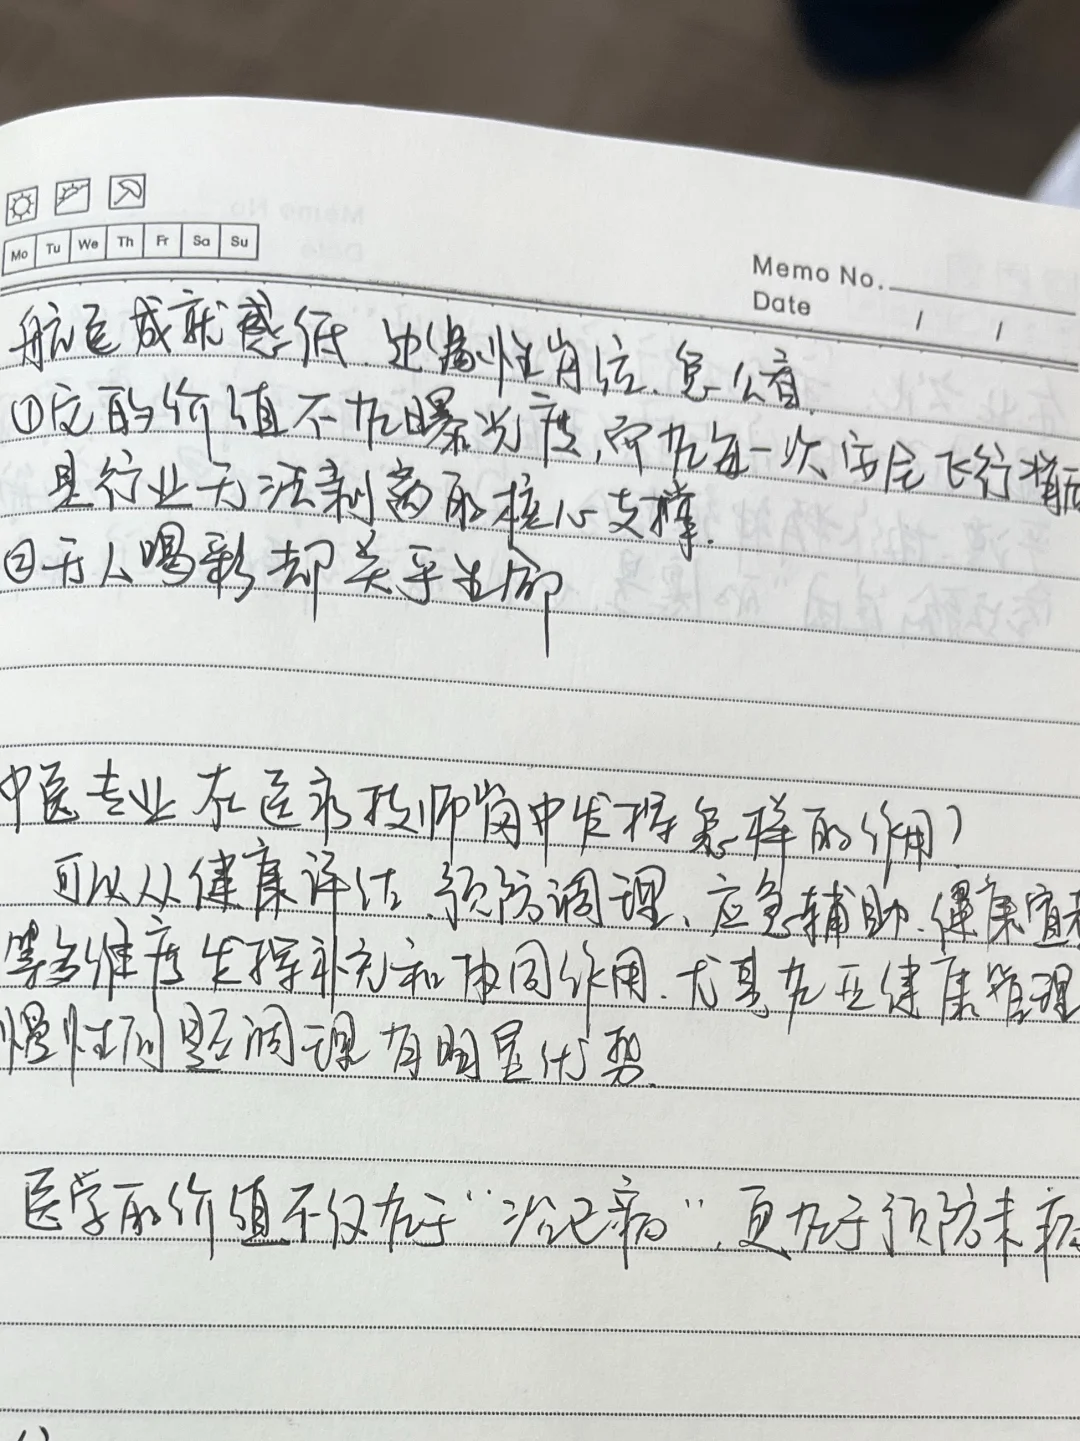 Mo Tu We Th Fr Sa Su
Memo No.
Date / /
航医成就感低、边缘性岗位、怎么看.
①它的价值不在曝光度,而在每一次安全飞行背后
是行业无法剥离的核心支撑.
②无人喝彩却关乎生命
中医专业在医疗技师岗中发挥怎样的作用?
可以从健康评估、预防调理、应急辅助、健康宣
等多维度发挥补充和协同作用.尤其在亚健康管理
慢性问题调理有明显优势.
医学的价值不仅在于“治已病”,更在于预防未病